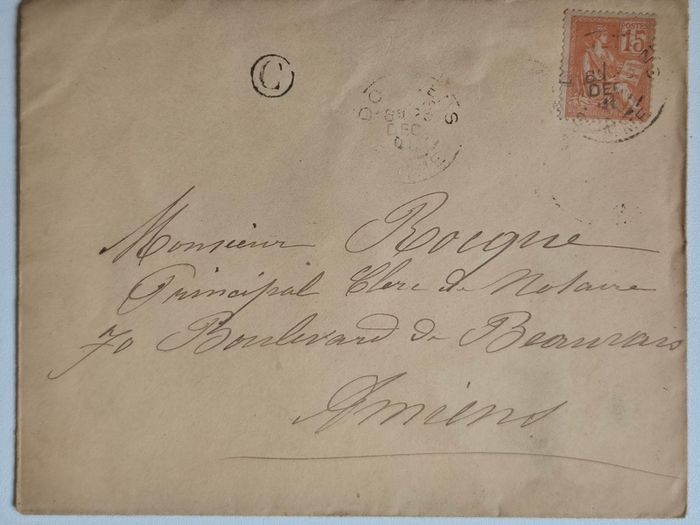 POSTES
15
C
DEC
01
DEC
Monsieur Rocque
Principal Clerc de Notaire
70 Boulevard de Beauvais
Amiens